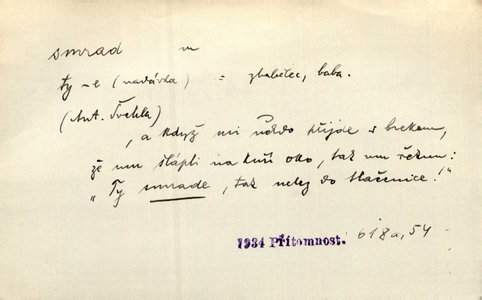 smrad m
ty ~e (nadávka) = zbabělec, baba.
(Ant. Švehla)
, a když mi někdo přijde s brekem,
že mu šlápli na kuří oko, tak mu řeknu:
"Ty smrade, tak nelez do tlačenice!"
1934 Přítomnost. 618a, 54